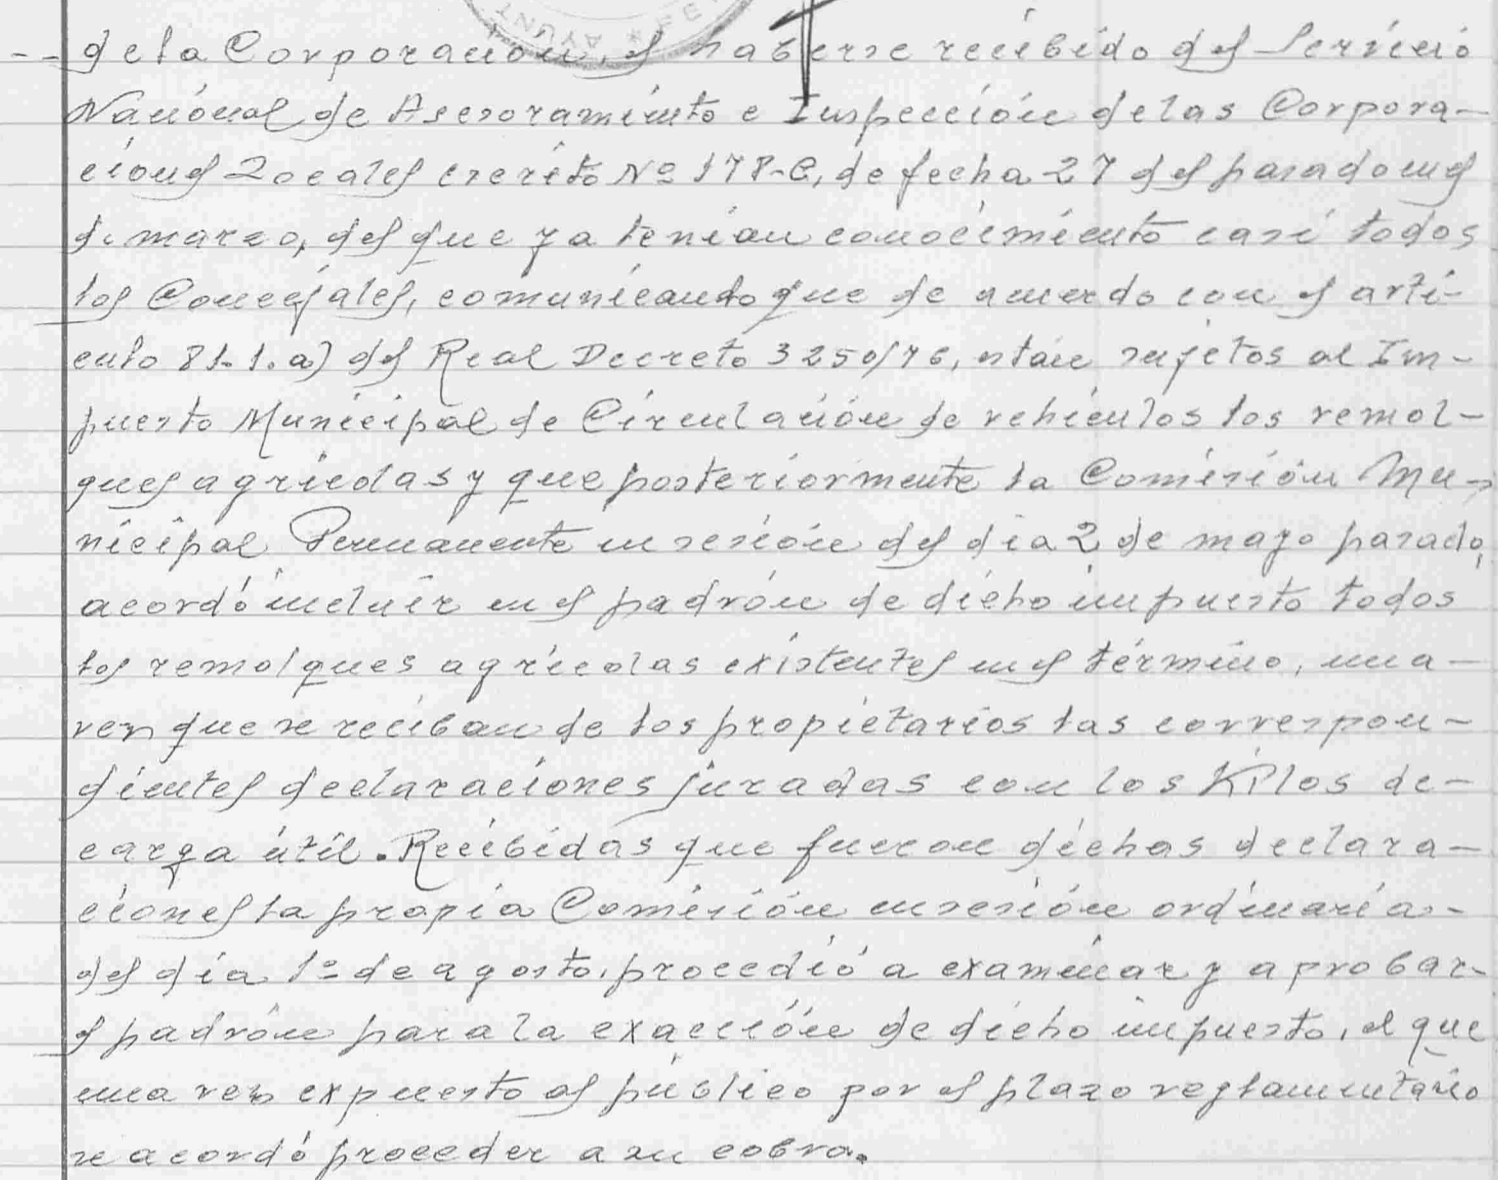 de la Corporación, el haberse recibido del Servicio
Nacional de Asesoramiento e Inspección de las Corpora-
ciones Locales escrito Nº 178-C, de fecha 27 del pasado mes
de marzo, del que ya tenían conocimiento casi todos
los Concejales, comunicando que de acuerdo con el artí-
culo 81.1.a) del Real Decreto 3250/76, están sujetos al Im-
puesto Municipal de Circulación de vehículos los remol-
ques agrícolas y que posteriormente la Comisión Mu-
nicipal Permanente en sesión del día 2 de mayo pasado,
acordó incluir en el padrón de dicho impuesto todos
los remolques agrícolas existentes en el término, una-
vez que se reciban de los propietarios las correspon-
dientes declaraciones juradas con los Kilos de-
carga útil. Recibidas que fueron dichas declara-
ciones la propia Comisión en sesión ordinaria-
del día 1º de agosto, procedió a examinar y aprobar-
el padrón para la exacción de dicho impuesto, el que
una vez expuesto al público por el plazo reglamentario
se acordó proceder a su cobro.